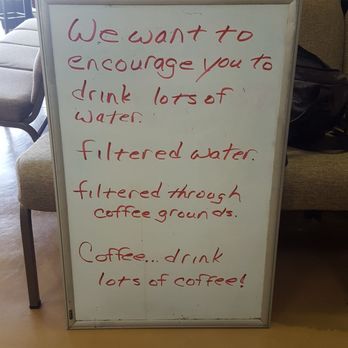 We want to
encourage you to
drink lots of
water.
filtered water.
filtered through
coffee grounds.
Coffee... drink
lots of coffee!